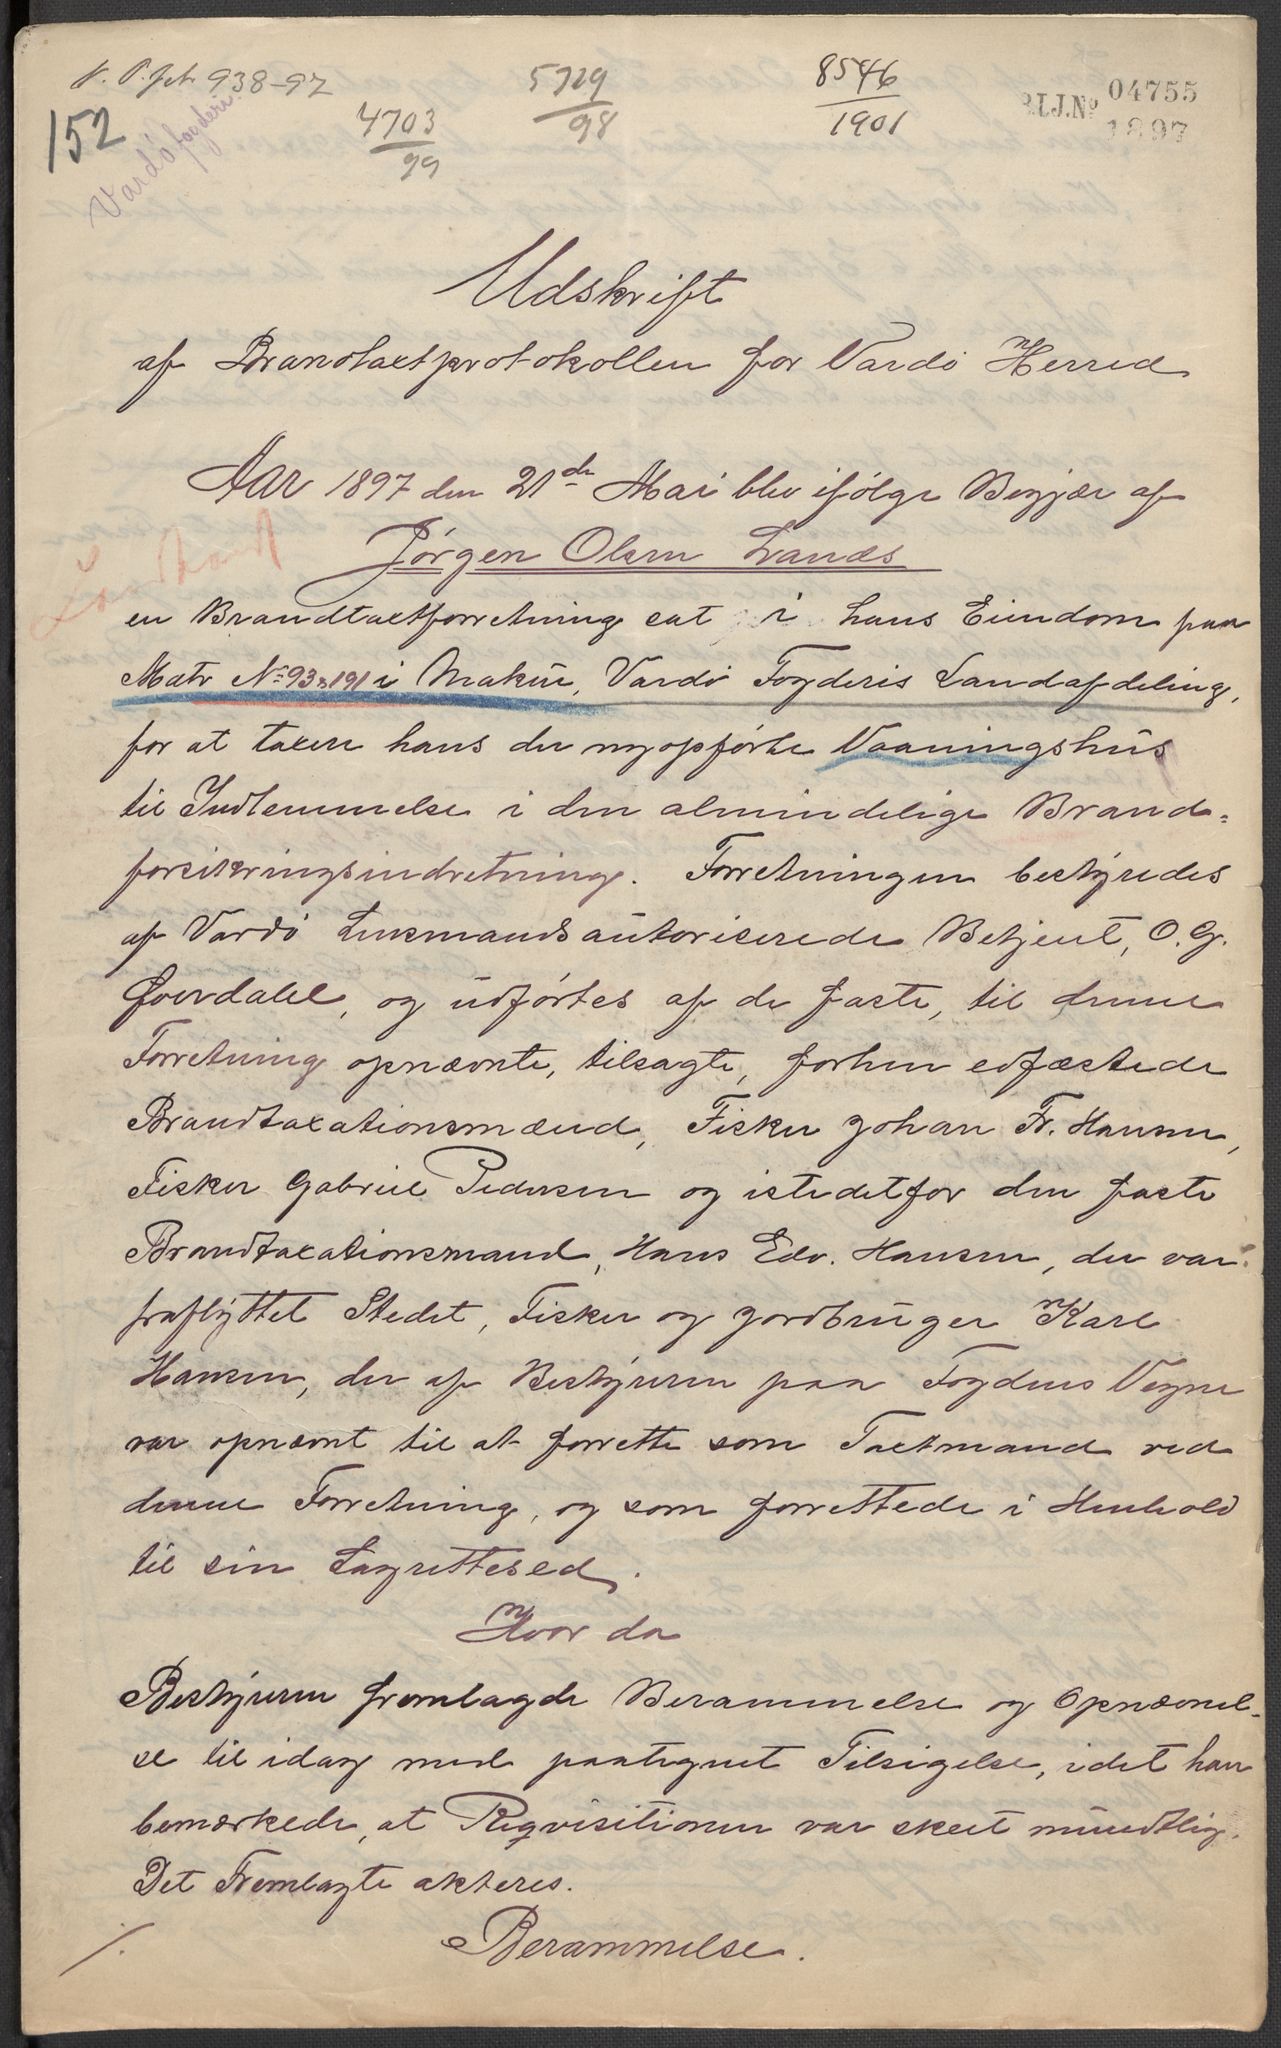 J. P. fet. 938-97
5729
98
8546
1901
BLJ.No 04755
1897
152
4703
99
Vardö fogderi.
Udskrift
af Brandtaxtprotokollen for Vardö Herred
Aar 1897 den 21de Mai blev ifølge Begjær af
Jørgen Olsen Lanæs
en Brandtaxtforretning sat i hans Eiendom paa
Matr No 93, 191 i Makür, Vardö Fogderis Landafdeling,
for at taxere hans der nyopførte Vaaningshus
til Indlemmelse i den almindelige Brand=
forsikringsindretning. Forretningen bestyredes
af Vardö Lensmands autoriserede Betjent, O. G.
Goverdalel, og udførtes af de faste, til denne
Forretning opnævnte, tilsagte, forhen edfæstede
Brandtaxationsmænd, Fisker Johan Fr. Hansen,
Fisker Gabriel Pedersen og istedetfor den faste
Brandtaxationsmand, Hans Edv. Hansen, der var
fraflyttet Stedet, Fisker og Jordbruger Karl
Hansen, der af Bestyreren paa Fogdens Vegne
var opnævnt til at forrette som Taxtmand ved
denne Forretning, og som forrettede i Henhold
til sin Lagrettesed.
Hvor da
Bestyreren fremlagde Berammelse og Opnævnel-
se til idag med paategnet Tilsigelse, idet han
bemærkede, at Reqvisitionen var skeet mundtlig.
Det Fremlagte akteres.
Berammelse.
/.